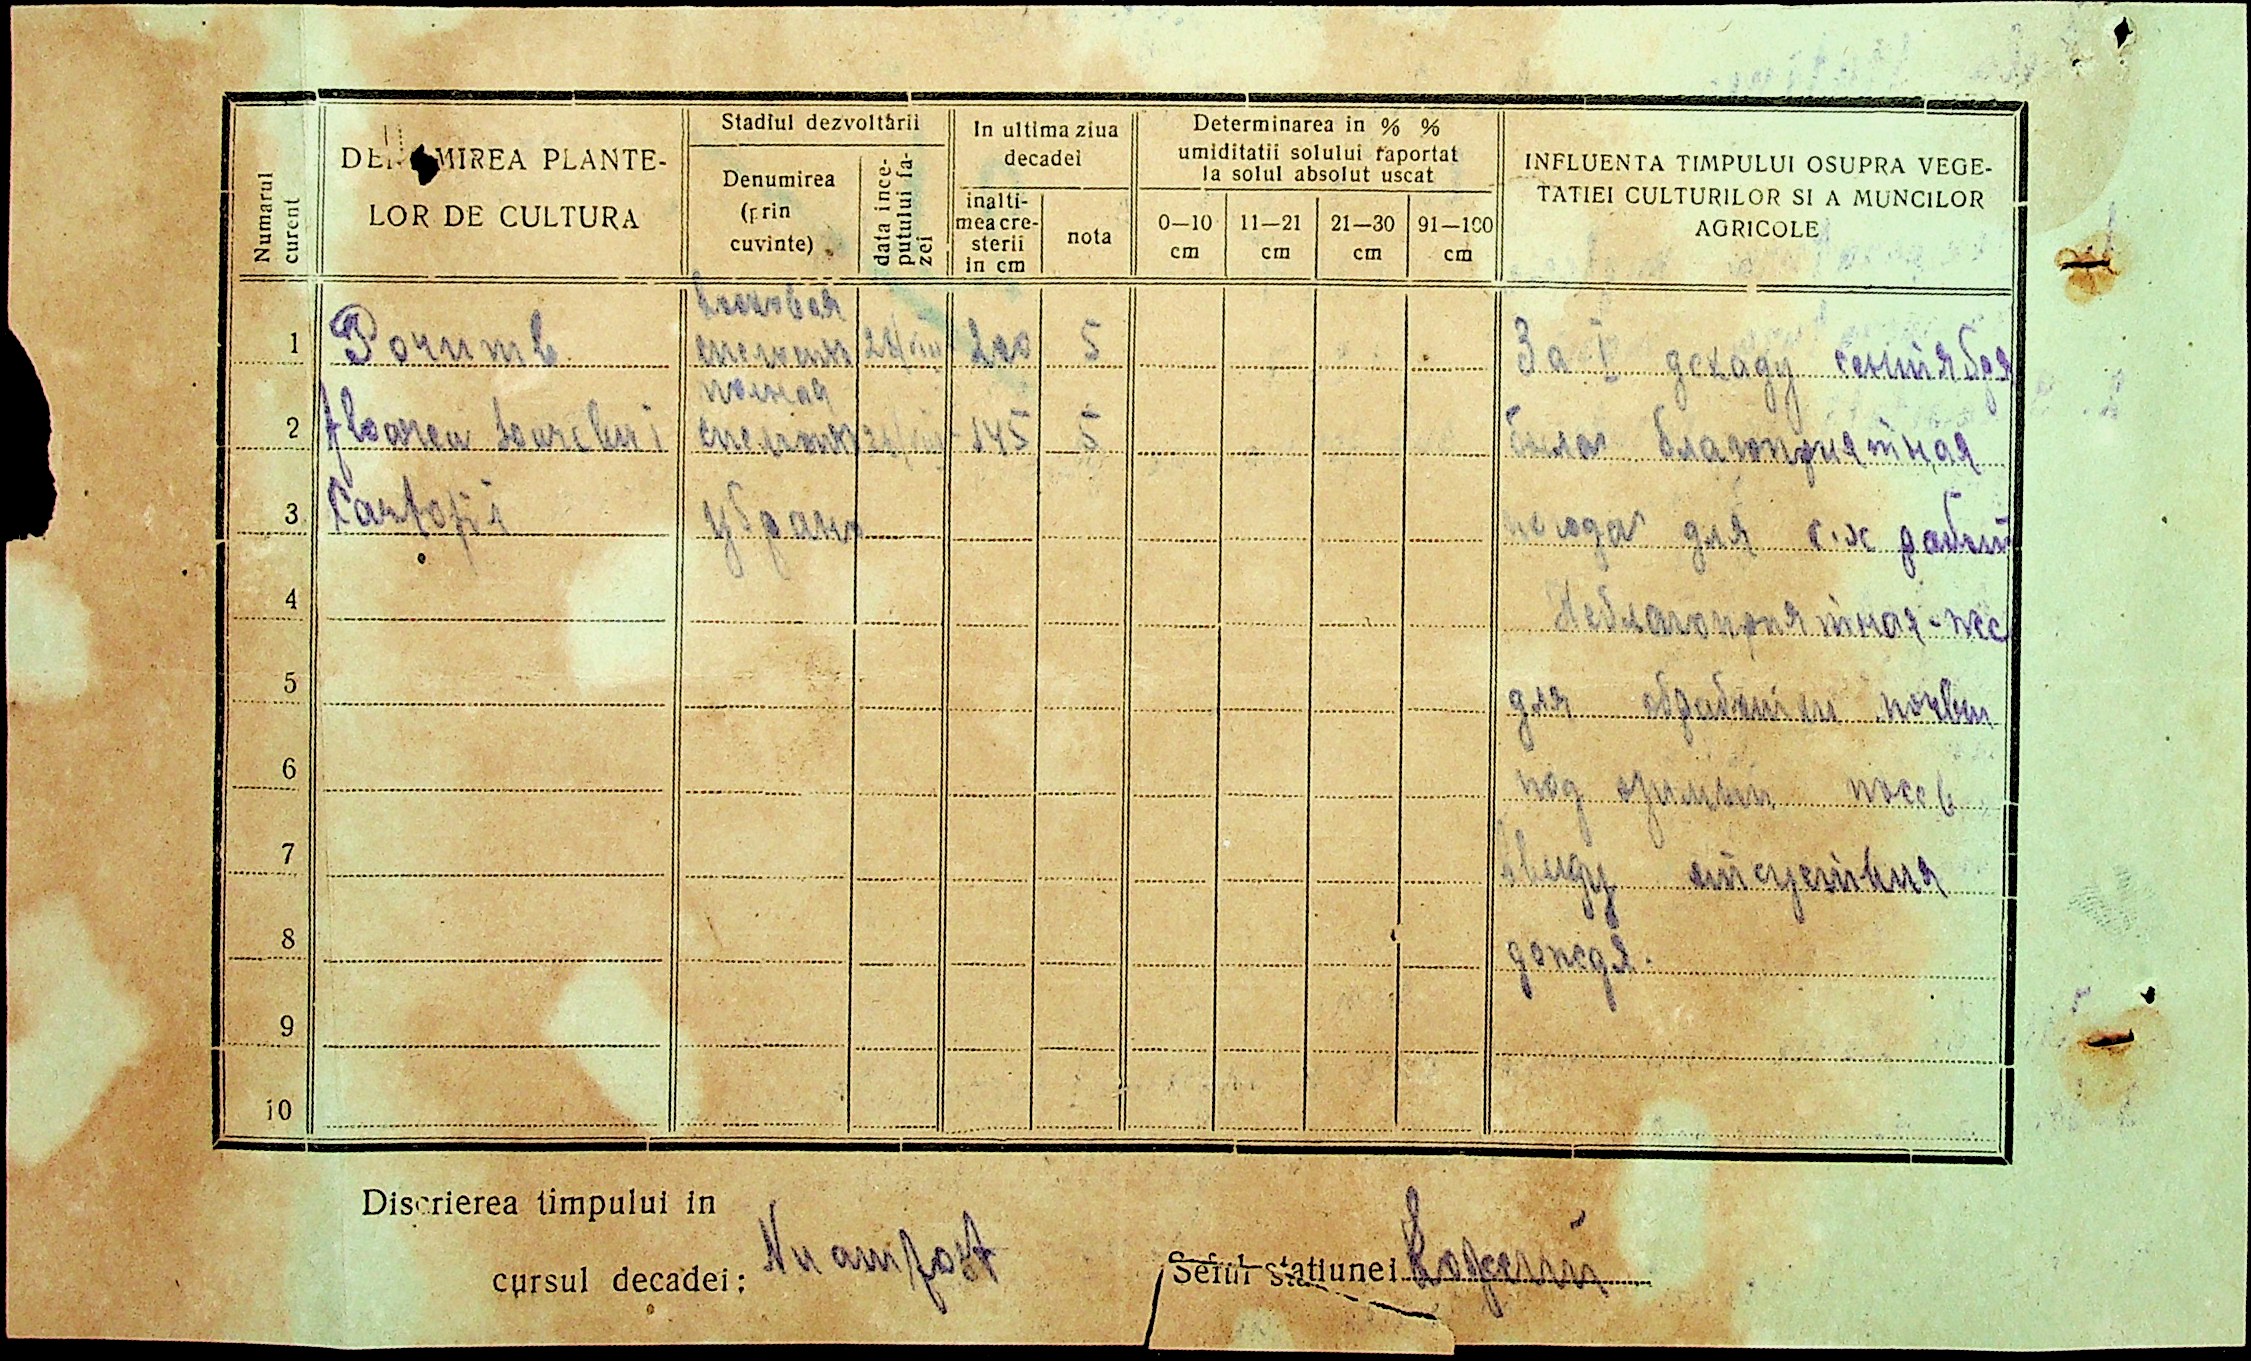 Numarul curent
DENUMIREA PLANTE-
LOR DE CULTURA
Stadiul dezvoltării
Denumirea
(prin
cuvinte)
data ince-
putului fa-
zei
In ultima ziua
decadei
inalti-
mea cre-
sterii
in cm
nota
Determinarea in % %
umiditatii solului raportat
la solul absolut uscat
0—10
cm
11—21
cm
21—30
cm
91—100
cm
INFLUENTA TIMPULUI OSUPRA VEGE-
TATIEI CULTURILOR SI A MUNCILOR
AGRICOLE
восковая
1 Porumb спелость 200 5
За I декаду сентября
полная
2 floarea soarelui спелость 145 5
была благоприятная
3 Cartofi убрано
погода для с.х работ
4
Неблагоприятная-же
5
для обработки почвы
6
под озимый посев
7
ввиду отсуствия
8
дождя.
9
10
Discrierea timpului in
cursul decadei: Nu am fost
Seful statiunei